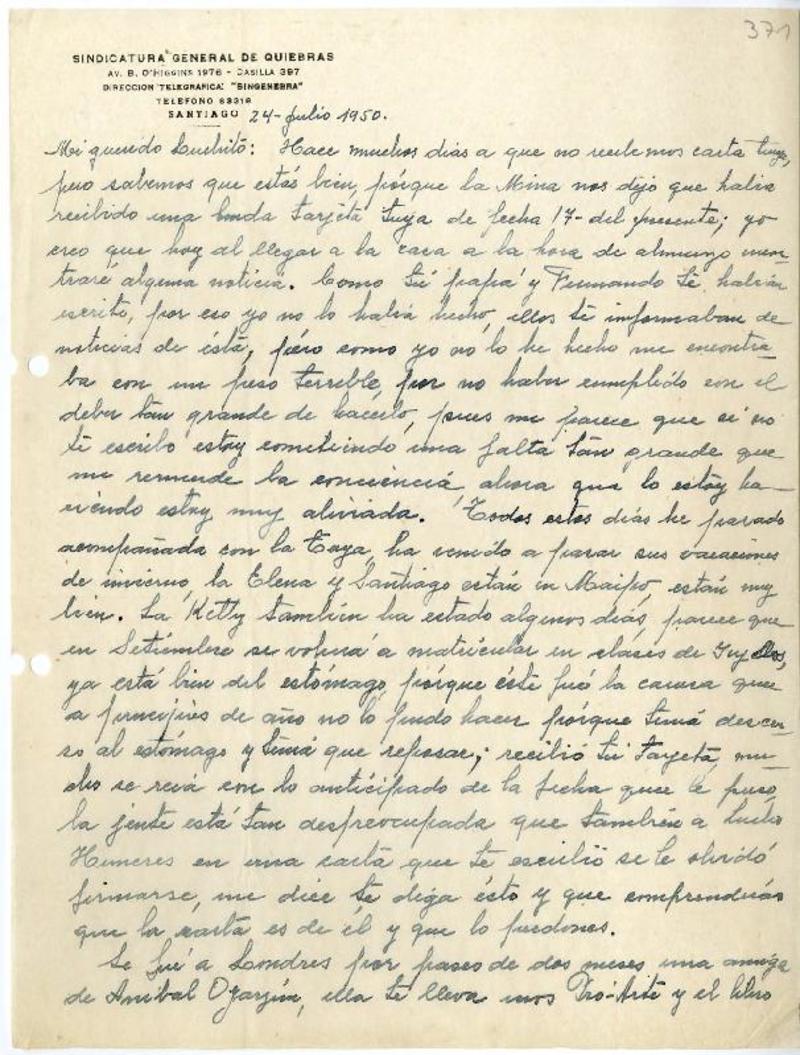 371
SINDICATURA GENERAL DE QUIEBRAS
AV. B. O'HIGGINS 1976 - CASILLA 397
DIRECCION TELEGRAFICA: "SINGENEBRA"
TELEFONO 83319
SANTIAGO 24-Julio 1950.
Mi querido Luchito: Hace muchos dias a que no recibemos carta tuya,
pero sabemos que estás bien, pórque la Mina nos dijo que habia
recibido una linda tarjeta tuya de fecha 17- del presente; yo
creo que hoy al llegar a la casa a la hora de almuerzo encon
traré alguna noticia. Como tú papá y Fernando te habian
escrito, por eso yo no lo habia hecho, ellos te informaban de
noticias de ésta, péro como yo no lo he hecho me encontra-
ba con un peso terrible, por no haber cumplido con el
deber tan grande de hacerlo, pues me parece que si no
te escribo estoy cometiendo una falta tan grande que
me remuerde la conciencia, ahora que lo estoy ha-
ciendo estoy muy aliviada. Todos estos dias he pasado
acompañada con la Taya, ha venido a pasar sus vacaciones
de invierno, la Elena y Santiago están en Maipo, están muy
bien. La Ketty tambien ha estado algunos dias, parece que
en Setiembre se volverá a matricular en clases de Inglés,
ya está bien del estómago, pórque éste fué la causa que
a principios de año no lo pudo hacer pórque tenia descen
so al estómago y tenia que reposar; recibió tú tarjeta, mu-
cho se reia con lo anticipado de la fecha que le puso,
la jente está tan despreocupada que tambien a Lucho
Humeres en una carta que te escribió se le olvidó
firmarse, me dice te diga ésto y que comprenderás
que la carta es de él y que lo perdones.
Se fué a Londres por paseo de dos meses una amiga
de Anibal Ogarzún, ella te lleva unos Pro-Arte y el libro